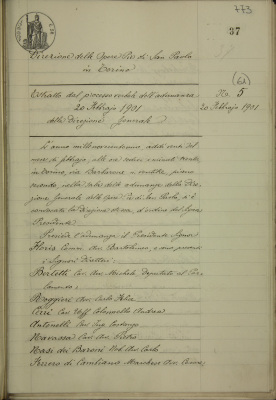 773
37
Direzione delle Opere Pie di San Paolo
in Torino
Estratto dal processo verbale dell'adunanza
20 Febbraio 1901
della Direzione Generale
N. 5
20 Febbraio 1901
L'anno millenovecentouno addì venti del
mese di febbraio, alle ore
in Torino, via Barbaroux
nella sala delle adunanze della Dire-
zione Generale delle Opere Pie di San Paolo, si è
convocata la Direzione stessa, d'ordine del Signor
Presidente.
Presiede l'adunanza il Presidente Signor
Floris Comm. Avv. Bartolomeo, e sono presenti
i Signori Direttori:
Bertetti Cav. Avv. Michele Deputato al Par-
lamento;
Roggieri Avv. Carlo Felice
Cav. Uff. Colonnello Andrea
Antonelli Cav. Ing. Costanzo
Cav. Avv. Pietro
Masi dei Baroni Avv. Carlo